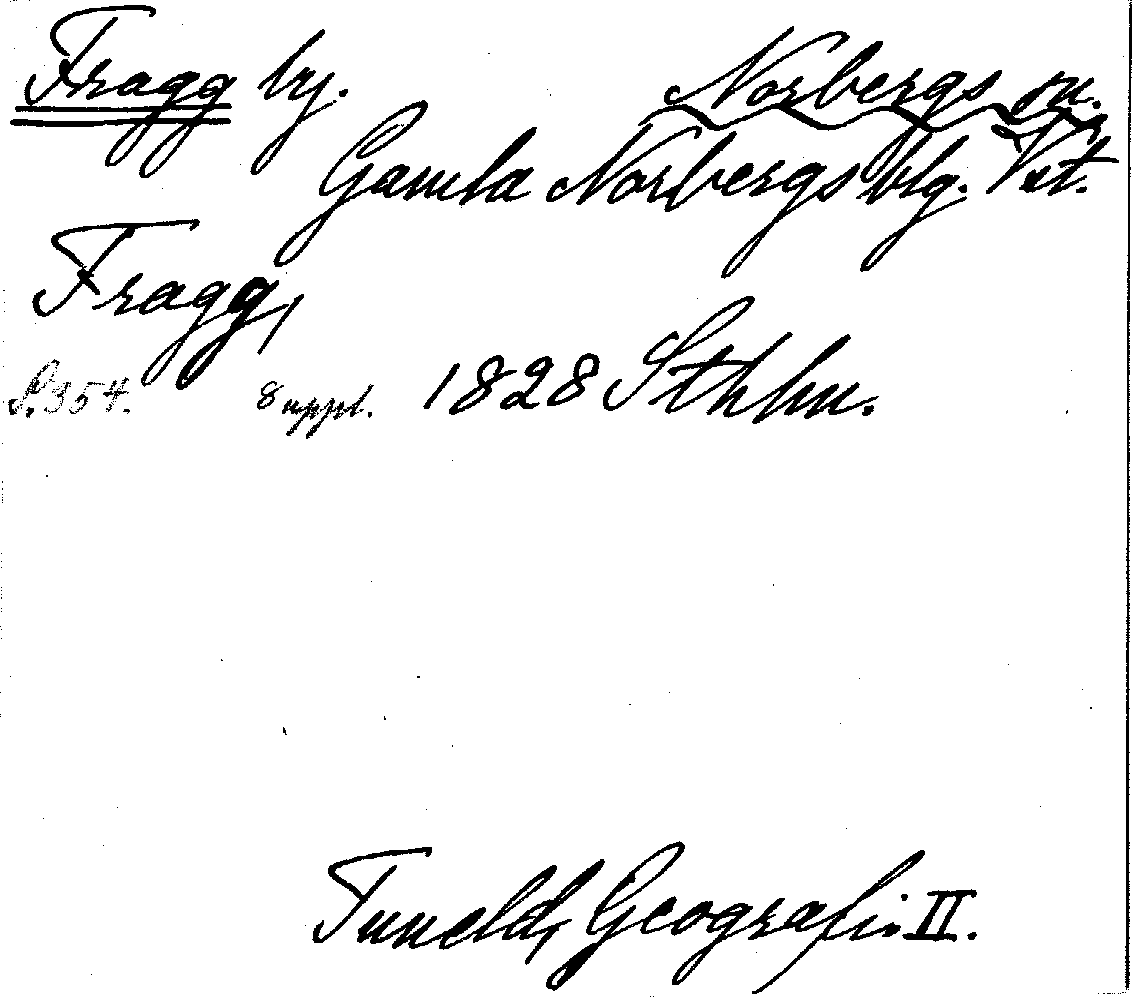 Fragg by. Norbergs sn.
Gamla Norbergs blg. Vstm.
Fragg,
S. 354. 8 uppl. 1828 Sthlm.
Tuneld, Geografi. II.